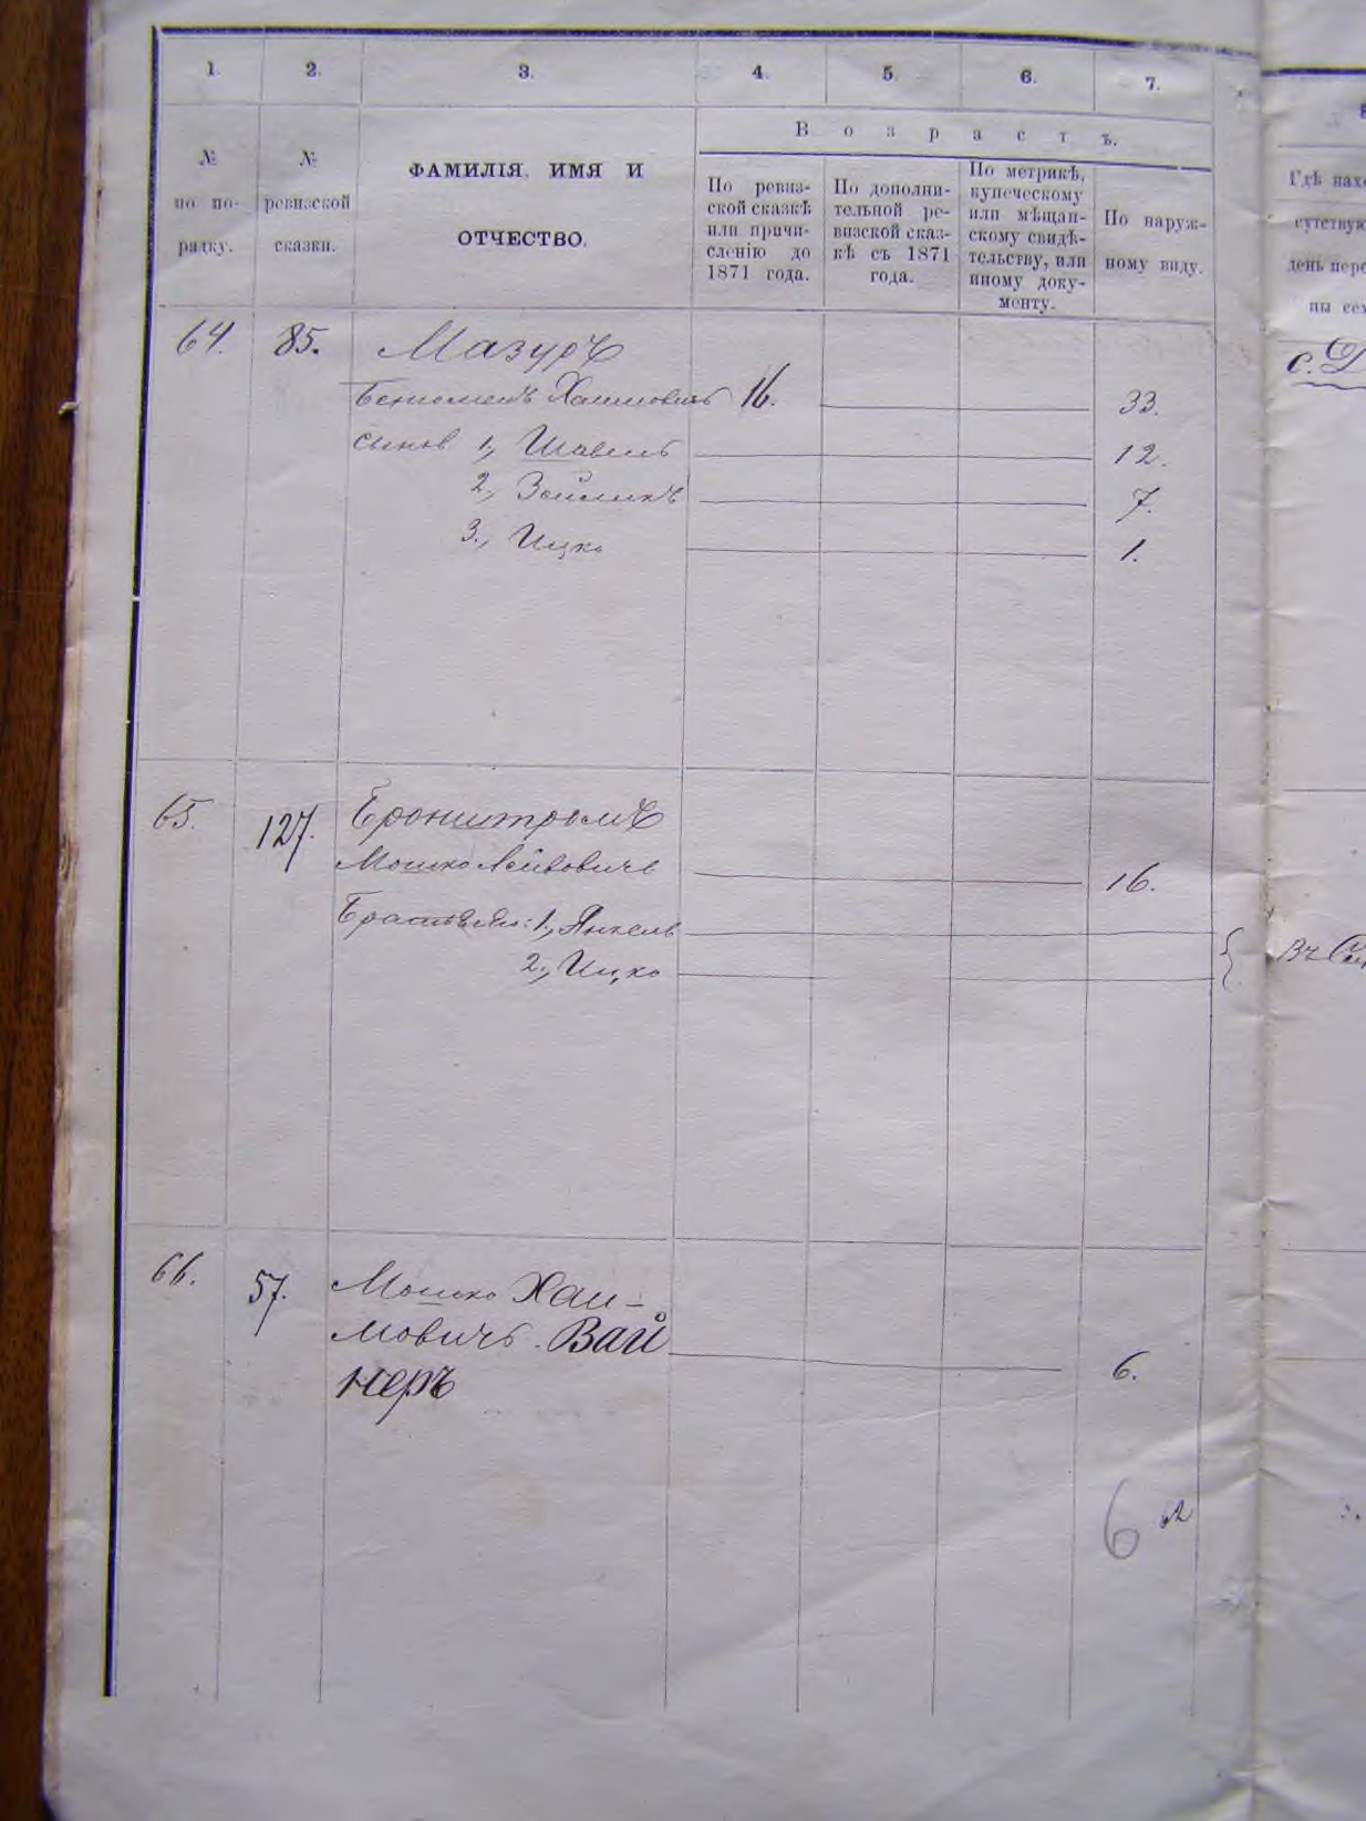 1. 2. 3. 4. 5. 6. 7.
№ по по-рядку.
№ ревизской сказки.
ФАМИЛІЯ, ИМЯ И
ОТЧЕСТВО.
Возрастъ.
По ревиз-
ской сказкѣ
или причи-
сленію до
1871 года.
По дополни-
тельной ре-
визской сказ-
кѣ съ 1871
года.
По метрикѣ,
купеческому
или мѣщан-
скому свидѣ-
тельству, или
иному доку-
менту.
По наруж-
ному виду.
Гдѣ нахо
сутствую
день пере
ны се
64. 85. Мазуръ
Бениоменъ Хаимовичъ 16. 33.
сыновъ 1., Шавель 12.
2., Зейликъ 7.
3., Ицко 1.
с. Д
65. 127. Бронштромъ
Мошко Лейбовичъ 16.
Братьевъ: 1., Янкель
2., Ицко
Въ
66. 57. Мошко Хаи-
мовичъ. Вай
неръ 6.
6 62